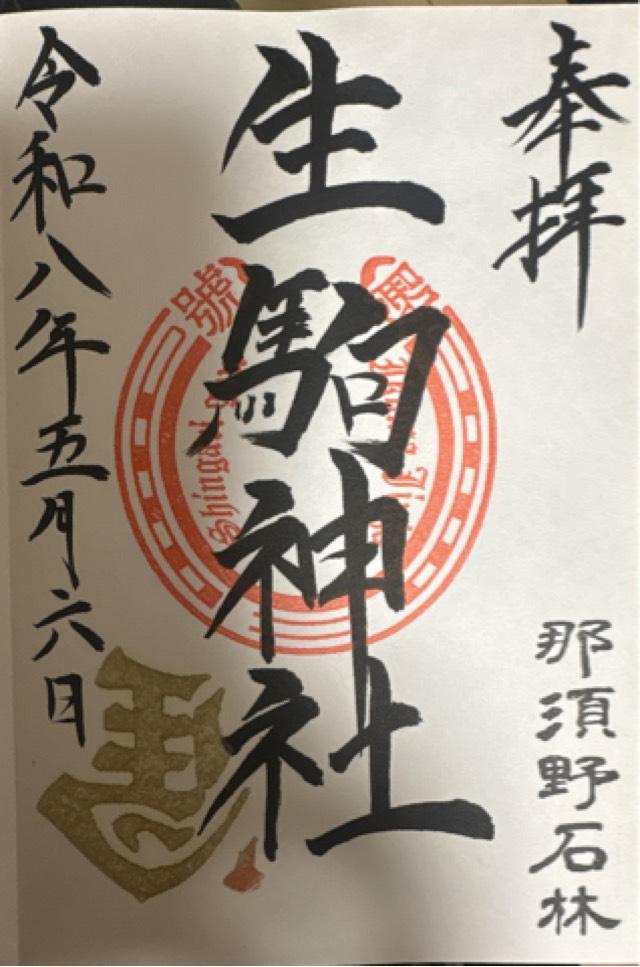 奉拝
那須野石林
生駒神社
令和八年五月六日
號
殿
Shingari
馬